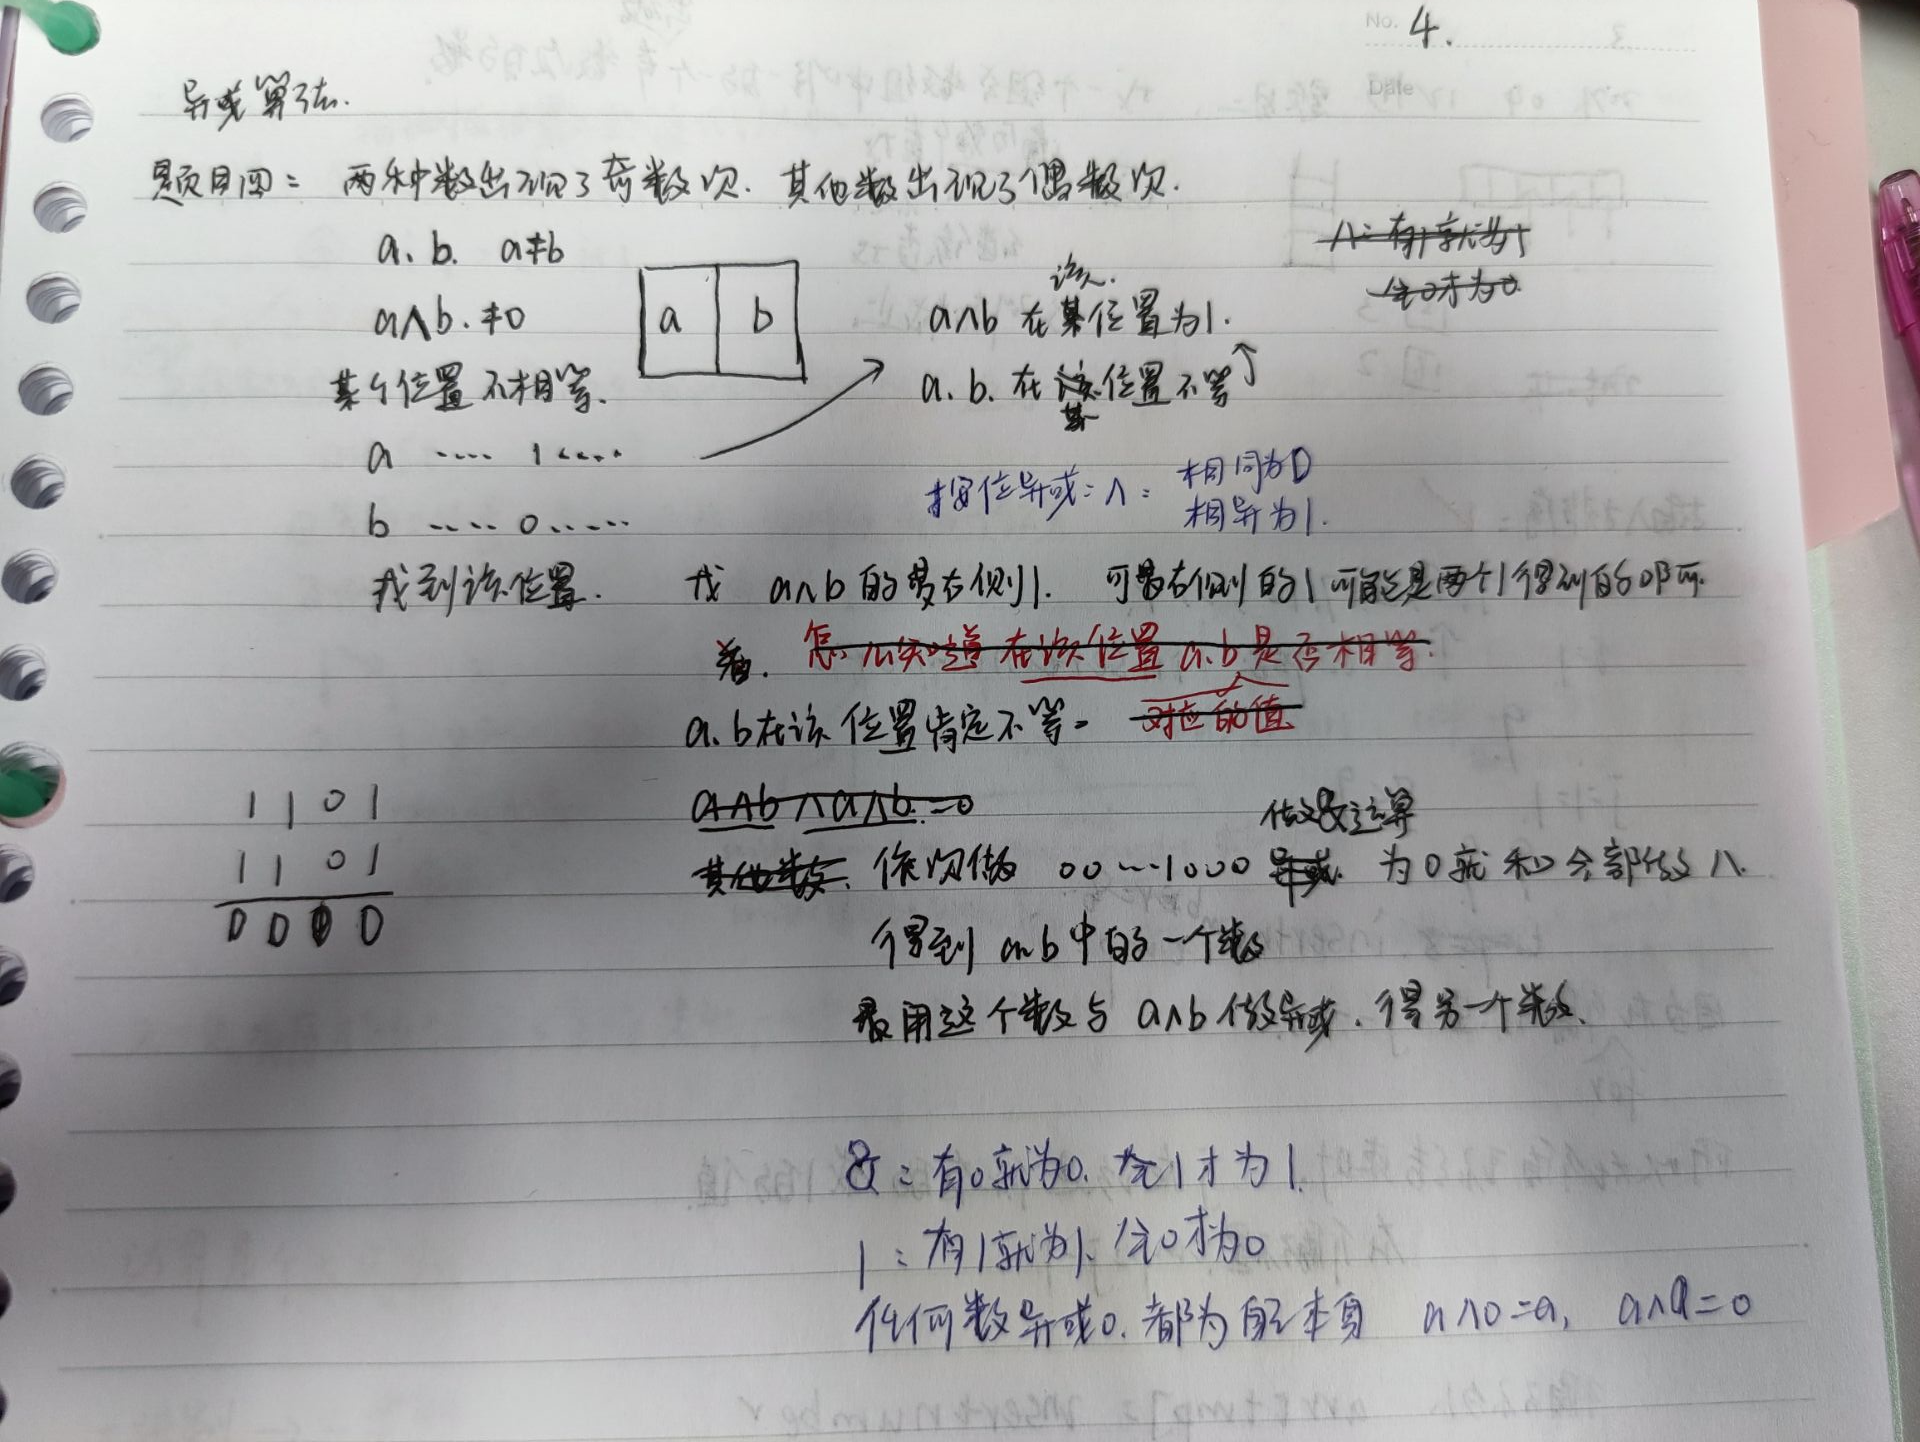 No. 4.
Date
异或算法.
题目四: 两种数出现了奇数次. 其他数出现了偶数次.
a. b. a≠b
∧: 有1就为1
全0才为0
a∧b. ≠0
a b
该.
a∧b 在某位置为1.
某个位置不相等.
a. b. 在该位置不等
某
a ···· 1 ·····
b ····· 0 ······
按位异或: ∧: 相同为0
相异为1.
找到该位置. 找 a∧b 的最右侧1. 可最右侧的1可能是两个1得到的那可
看. 怎么知道在该位置 a.b 是否相等.
a.b在该位置肯定不等. 对应的值
1 1 0 1
1 1 0 1
0 0 0 0
a∧b ∧ a∧b = 0
做&运算
其他数. 依次做 00····1000 异或. 为0就和全部做∧.
得到 a∧b中的一个数
最用这个数与 a∧b 做异或. 得另一个数.
&: 有0就为0. 全1才为1.
|: 有1就为1. 全0才为0
任何数异或0. 都为自己本身 a∧0=a, a∧a=0